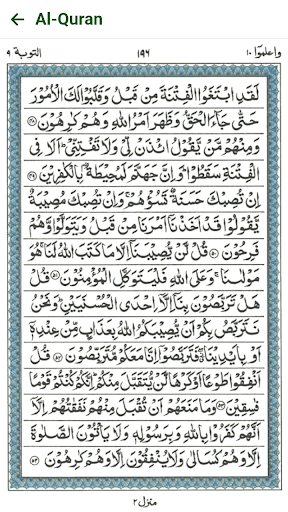 Al-Quran
واعلموا ١٠
١٩٦
التوبة ٩
لَقَدِ ابْتَغَوُا الْفِتْنَةَ مِنْ قَبْلُ وَقَلَّبُوْا لَكَ الْاُمُوْرَ
حَتّٰى جَآءَ الْحَقُّ وَظَهَرَ اَمْرُ اللّٰهِ وَهُمْ كٰرِهُوْنَ ﴿٤٨﴾
وَمِنْهُمْ مَّنْ يَّقُوْلُ ائْذَنْ لِّيْ وَلَا تَفْتِنِّيْ ؕ اَلَا فِي
الْفِتْنَةِ سَقَطُوْا ؕ وَاِنَّ جَهَنَّمَ لَمُحِيْطَةٌۢ بِالْكٰفِرِيْنَ ﴿٤٩﴾
اِنْ تُصِبْكَ حَسَنَةٌ تَسُؤْهُمْ ۚ وَاِنْ تُصِبْكَ مُصِيْبَةٌ
يَّقُوْلُوْا قَدْ اَخَذْنَاۤ اَمْرَنَا مِنْ قَبْلُ وَيَتَوَلَّوْا وَّهُمْ
فَرِحُوْنَ ﴿٥٠﴾ قُلْ لَّنْ يُّصِيْبَنَاۤ اِلَّا مَا كَتَبَ اللّٰهُ لَنَا ۚ هُوَ
مَوْلٰىنَا ۚ وَعَلَى اللّٰهِ فَلْيَتَوَكَّلِ الْمُؤْمِنُوْنَ ﴿٥١﴾ قُلْ
هَلْ تَرَبَّصُوْنَ بِنَاۤ اِلَّاۤ اِحْدَى الْحُسْنَيَيْنِ ؕ وَنَحْنُ
نَتَرَبَّصُ بِكُمْ اَنْ يُّصِيْبَكُمُ اللّٰهُ بِعَذَابٍ مِّنْ عِنْدِهٖۤ
اَوْ بِاَيْدِيْنَا ۖ فَتَرَبَّصُوْۤا اِنَّا مَعَكُمْ مُّتَرَبِّصُوْنَ ﴿٥٢﴾ قُلْ
اَنْفِقُوْا طَوْعًا اَوْ كَرْهًا لَّنْ يُّتَقَبَّلَ مِنْكُمْ ؕ اِنَّكُمْ كُنْتُمْ قَوْمًا
فٰسِقِيْنَ ﴿٥٣﴾ وَمَا مَنَعَهُمْ اَنْ تُقْبَلَ مِنْهُمْ نَفَقٰتُهُمْ اِلَّاۤ
اَنَّهُمْ كَفَرُوْا بِاللّٰهِ وَبِرَسُوْلِهٖ وَلَا يَاْتُوْنَ الصَّلٰوةَ
اِلَّا وَهُمْ كُسَالٰى وَلَا يُنْفِقُوْنَ اِلَّا وَهُمْ كٰرِهُوْنَ ﴿٥٤﴾
منزل ٢